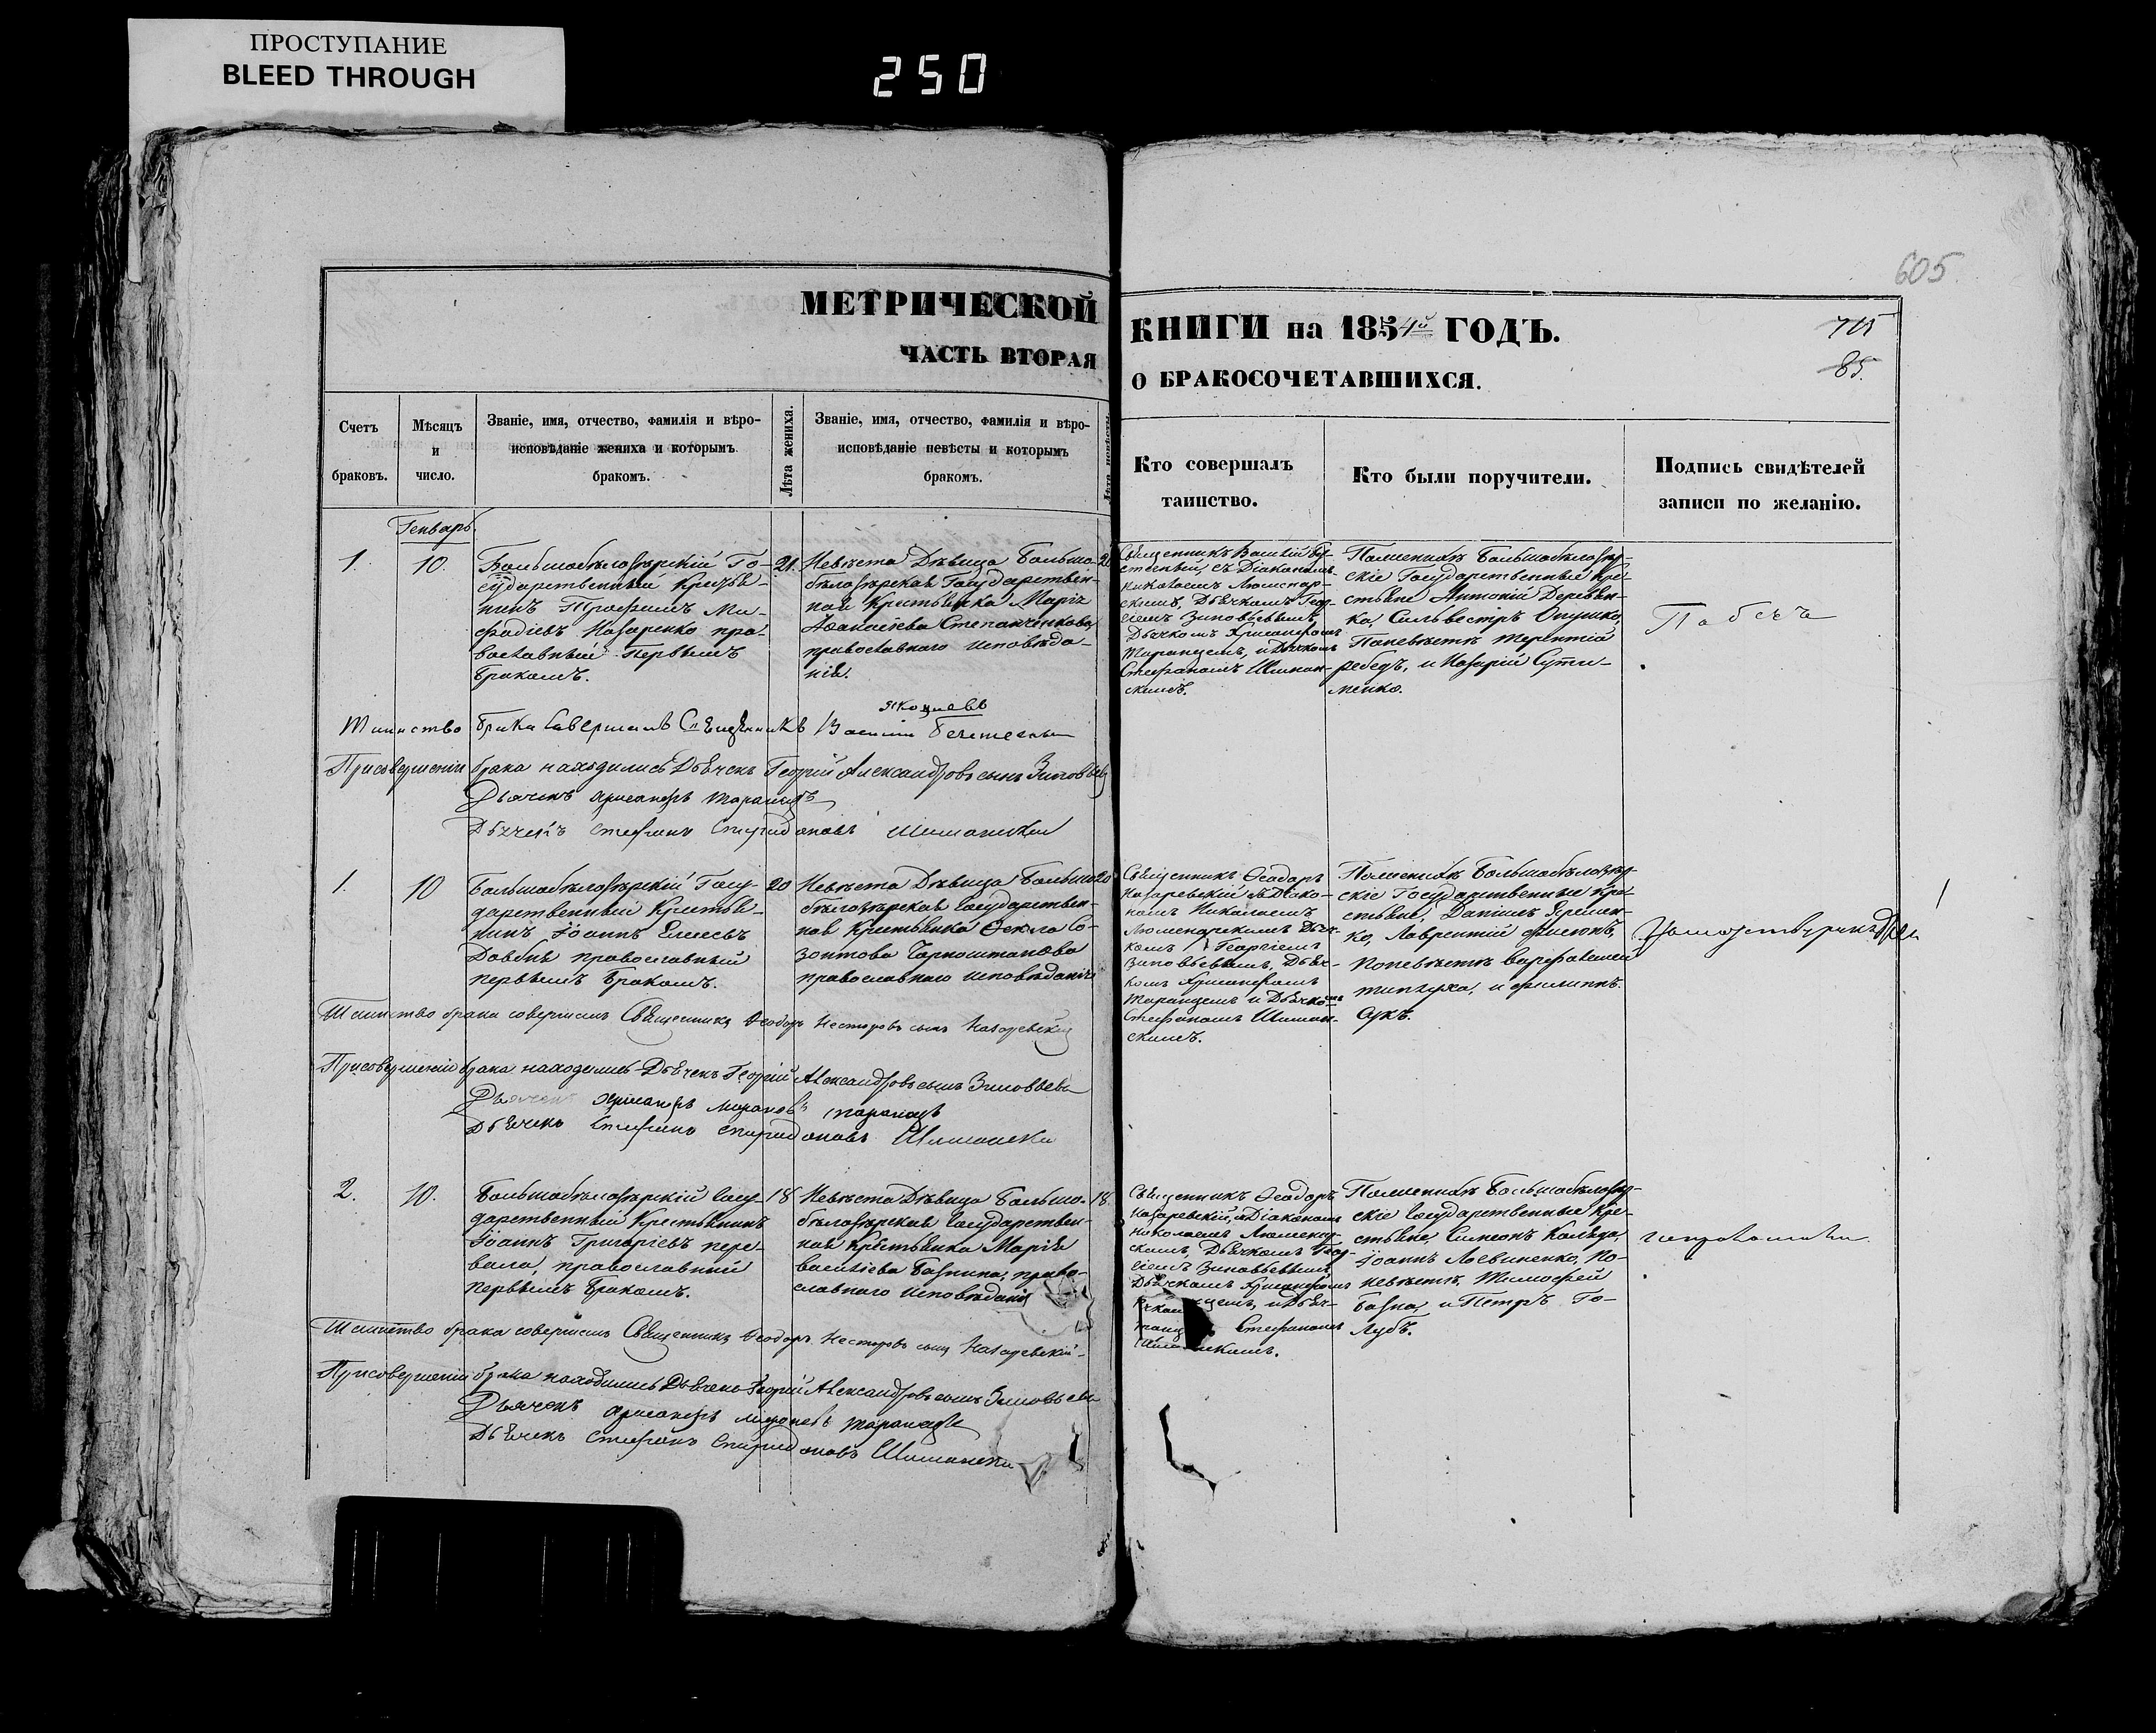 ПРОСТУПАНИЕ
BLEED THROUGH
250
605
МЕТРИЧЕСКОЙ
ЧАСТЬ ВТОРАЯ
КНИГИ на 1854й ГОДЪ.
О БРАКОСОЧЕТАВШИХСЯ.
715
85.
Счетъ
браковъ.
Мѣсяцъ
и
число.
Званіе, имя, отчество, фамилія и вѣро-
исповѣданіе жениха и которымъ
бракомъ.
Лѣта жениха.
Званіе, имя, отчество, фамилія и вѣро-
исповѣданіе невѣсты и которымъ
бракомъ.
Лѣта невѣсты.
Кто совершалъ
таинство.
Кто были поручители.
Подпись свидѣтелей
записи по желанію.
Генварь.
1.
10.
Большобѣлозѣрскій Го-
сударственный Крестья-
нинъ Трофимъ Ми-
фодіевъ Назаренко пра-
вославный первымъ
бракомъ.
21.
Невѣста Дѣвица Больше-
бѣлозѣрская Государствен-
ная Крестьянка Марія
Афанасіева Степанченкова
православнаго исповѣда-
нія.
Священникъ Василій
съ Діакономъ
Николаемъ
скимъ, Дьячкомъ Геор-
гіемъ Зиновьевымъ,
Дьячкомъ Хрисанфомъ
Таранцемъ, и Дьячкомъ
Стефаномъ Шиман-
скимъ.
По женихѣ Большобѣлозѣр-
скіе Государственные Кре-
стьяне Антоній Деревян-
ка, Сильвестръ Опушко,
По невѣстѣ Терентій
Лебедь, и Назарій
менко.
Таинство брака совершилъ Священникъ Василій
При совершеніи брака находились Дьячекъ Георгій Александровъ сынъ Зиновьевъ
Дьячекъ Хрисанфъ Таранецъ
Дьячекъ Стефанъ Спиридоновъ Шиманскій
1.
10
Большобѣлозѣрскій Госу-
дарственный Крестья-
нинъ Іоаннъ Елисеевъ
Довбня православный
первымъ бракомъ.
20
Невѣста Дѣвица Больше-
бѣлозѣрская Государствен-
ная Крестьянка Ѳекла Со-
зонтова Чорноштанова
православнаго исповѣданія
20
Священникъ Ѳеодоръ
Назаревскій съ Діако-
номъ Николаемъ
Дьяч-
комъ Георгіемъ
Зиновьевымъ, Дьяч-
комъ Хрисанфомъ
Таранцемъ и Дьячкомъ
Стефаномъ Шиман-
скимъ.
По женихѣ Большобѣлозѣр-
скіе Государственные Кре-
стьяне, Даніилъ Яремен-
ко, Лаврентій
По невѣстѣ Варфоломей
и Филиппъ
Таинство брака совершилъ Священникъ Ѳеодоръ Несторовъ сынъ Назаревскій
При совершеніи брака находились Дьячекъ Георгій Александровъ сынъ Зиновьевъ
Дьячекъ Хрисанфъ Таранецъ
Дьячекъ Стефанъ Спиридоновъ Шиманскій
2.
10.
Большобѣлозѣрскій Госу-
дарственный Крестьянинъ
Іоаннъ Григоріевъ Пере-
вала, православный
первымъ бракомъ.
18
Невѣста Дѣвица Больше-
бѣлозѣрская Государствен-
ная Крестьянка Марія
Василіева Базнина, право-
славнаго исповѣданія
18.
Священникъ Ѳеодоръ
Назаревскій, съ Діакономъ
Николаемъ
скимъ, Дьячкомъ Геор-
гіемъ Зиновьевымъ,
Дьячкомъ Хрисанфомъ
и Дьяч-
Стефаномъ
По женихѣ Большобѣлозѣр-
скіе Государственные Кре-
стьяне, Симеонъ Коляда,
Іоаннъ Логвиненко, По
невѣстѣ, Тимофей
Базна, и Петръ Го-
лубъ.
Таинство брака совершилъ Священникъ Ѳеодоръ Несторовъ сынъ Назаревскій
При совершеніи брака находились Дьячекъ Георгій Александровъ сынъ Зиновьевъ
Дьячекъ Хрисанфъ Таранецъ
Дьячекъ Стефанъ Спиридоновъ Шиманскій